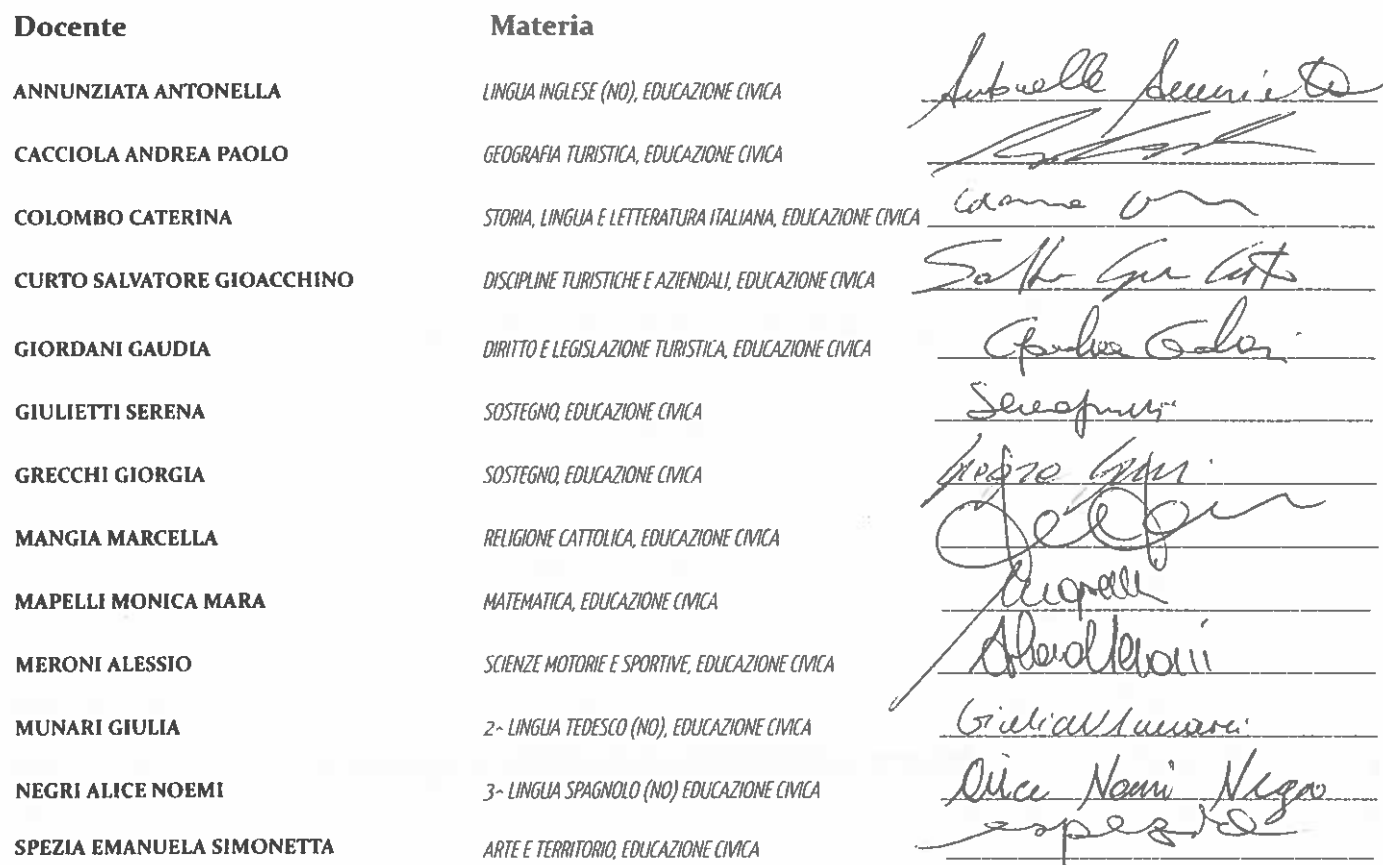 Docente Materia
ANNUNZIATA ANTONELLA LINGUA INGLESE (NO), EDUCAZIONE CIVICA
CACCIOLA ANDREA PAOLO GEOGRAFIA TURISTICA, EDUCAZIONE CIVICA
COLOMBO CATERINA STORIA, LINGUA E LETTERATURA ITALIANA, EDUCAZIONE CIVICA
CURTO SALVATORE GIOACCHINO DISCIPLINE TURISTICHE E AZIENDALI, EDUCAZIONE CIVICA
GIORDANI GAUDIA DIRITTO E LEGISLAZIONE TURISTICA, EDUCAZIONE CIVICA
GIULIETTI SERENA SOSTEGNO, EDUCAZIONE CIVICA
GRECCHI GIORGIA SOSTEGNO, EDUCAZIONE CIVICA
MANGIA MARCELLA RELIGIONE CATTOLICA, EDUCAZIONE CIVICA
MAPELLI MONICA MARA MATEMATICA, EDUCAZIONE CIVICA
MERONI ALESSIO SCIENZE MOTORIE E SPORTIVE, EDUCAZIONE CIVICA
MUNARI GIULIA 2^ LINGUA TEDESCO (NO), EDUCAZIONE CIVICA Giulia Munari
NEGRI ALICE NOEMI 3^ LINGUA SPAGNOLO (NO) EDUCAZIONE CIVICA Alice Noemi Negri
SPEZIA EMANUELA SIMONETTA ARTE E TERRITORIO, EDUCAZIONE CIVICA